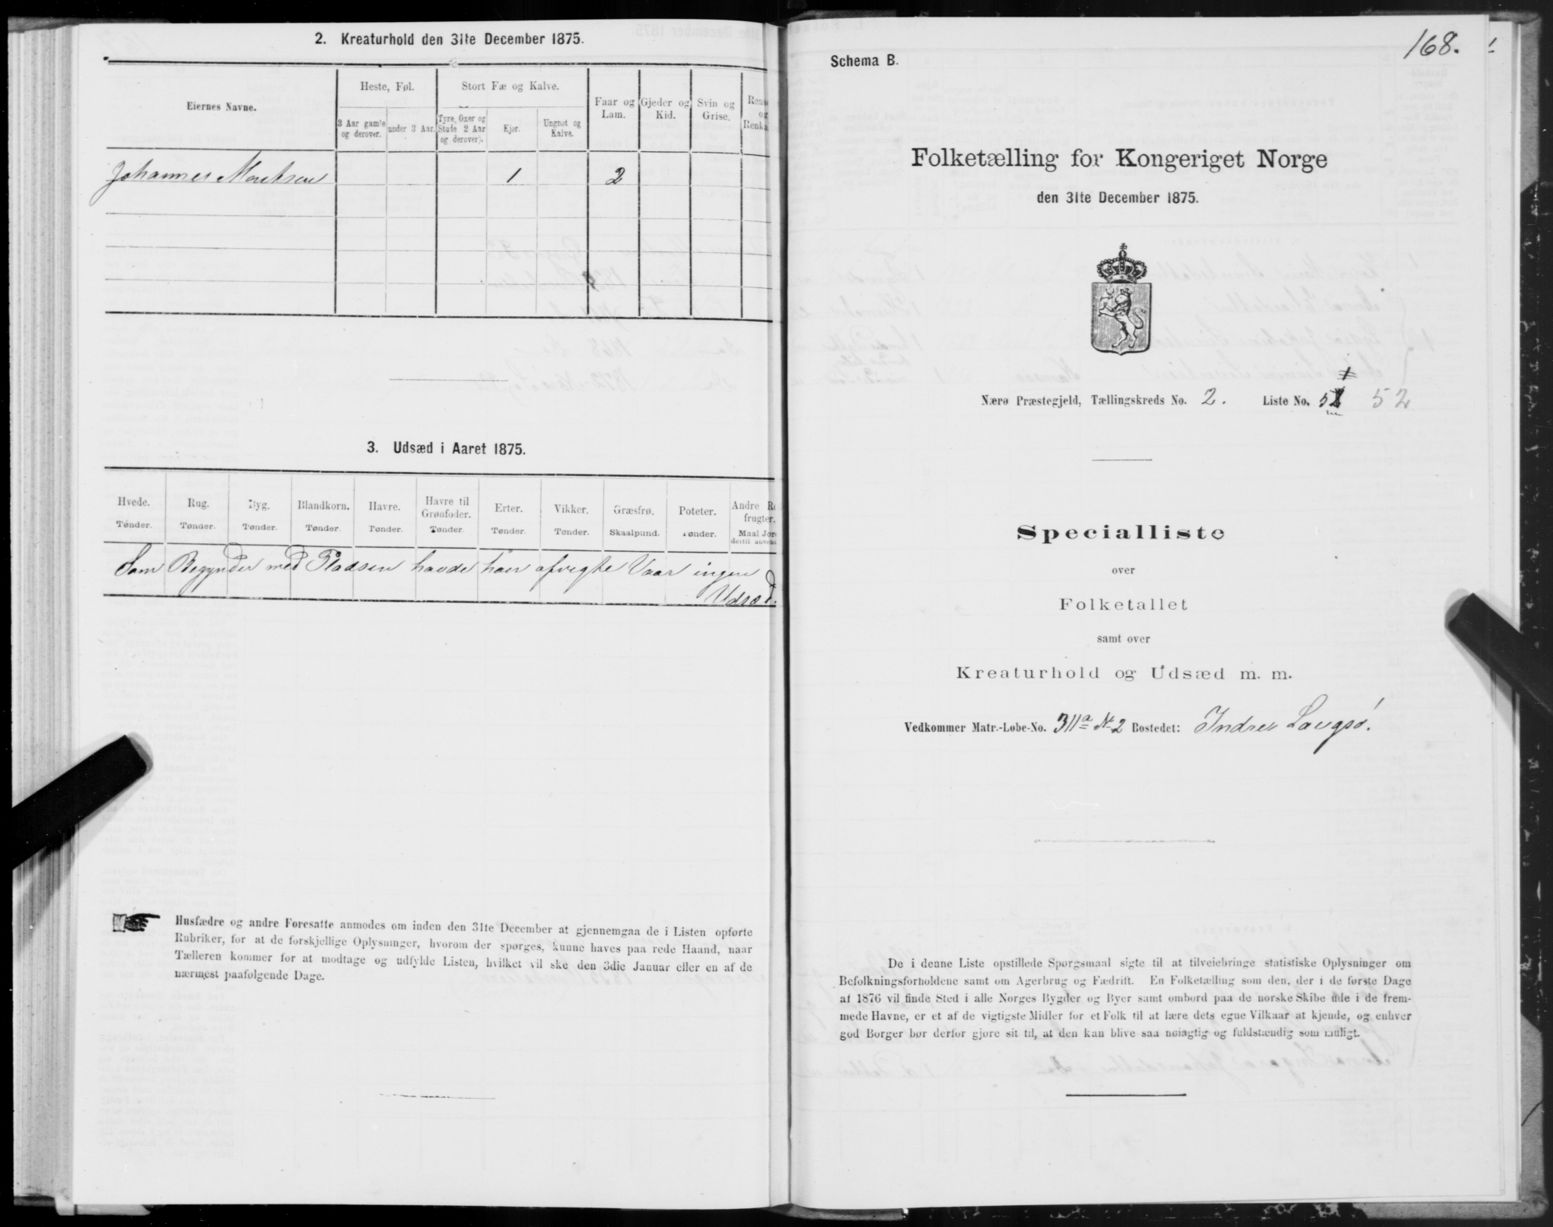 2. Kreaturhold den 31te December 1875.
Eiernes Navne.
Heste, Føl.
Stort Fæ og Kalve.
Faar og Lam.
Gjeder og Kid.
Svin og Grise.
3 Aar gamle og derover.
under 3 Aar.
Tyre, Oxer og Stude 2 Aar og derover.
Kjør.
Ungnøt og Kalve.
Johannes 1 2
3. Udsæd i Aaret 1875.
Hvede. Rug. Byg. Blandkorn. Havre. Havre til Grønfoder. Erter. Vikker. Græsfrø. Poteter. Andre
Tønder. Tønder. Tønder. Tønder. Tønder. Tønder. Tønder. Tønder. Skaalpund. Tønder. Maal
Som Begynder med Pladsen havde han afvigte Vaar ingen
Udsæd.
Husfædre og andre Foresatte anmodes om inden den 31te December at gjennemgaa de i Listen opførte
Rubriker, for at de forskjellige Oplysninger, hvorom der spørges, kunne haves paa rede Haand, naar
Tælleren kommer for at modtage og udfylde Listen, hvilket vil ske den 3die Januar eller en af de
nærmest paafølgende Dage.
168.
Schema B.
Folketælling for Kongeriget Norge
den 31te December 1875.
Nærø Præstegjeld, Tællingskreds No. 2. Liste No. 52
Specialliste
over
Folketallet
samt over
Kreaturhold og Udsæd m. m.
Vedkommer Matr.-Løbe-No. 311a No 2 Bostedet: Indre Langsø.
De i denne Liste opstillede Spørgsmaal sigte til at tilveiebringe statistiske Oplysninger om
Befolkningsforholdene samt om Agerbrug og Fædrift. En Folketælling som den, der i de første Dage
af 1876 vil finde Sted i alle Norges Bygder og Byer samt ombord paa de norske Skibe ude i de frem-
mede Havne, er et af de vigtigste Midler for et Folk til at lære dets egne Vilkaar at kjende, og enhver
god Borger bør derfor gjøre sit til, at den kan blive saa nøiagtig og fuldstændig som muligt.